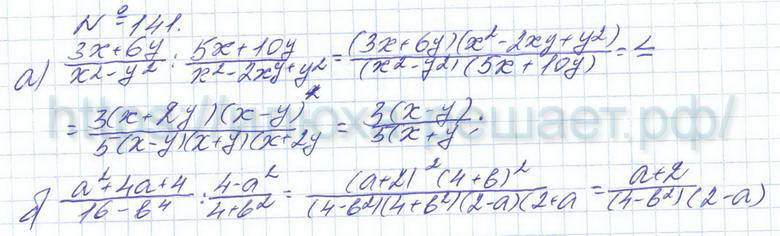 № 141.
а) (3x+6y)/(x²-y²) : (5x+10y)/(x²-2xy+y²) = (3x+6y)(x²-2xy+y²)/(x²-y²)(5x+10y) = =
= 3(x+2y)(x-y)²/5(x-y)(x+y)(x+2y = 3(x-y)/5(x+y .
б) (a²+4a+4)/(16-b⁴) : (4-a²)/(4+b²) = (a+2)²(4+b)²/(4-b²)(4+b²)(2-a)(2+a = (a+2)/(4-b²)(2-a)